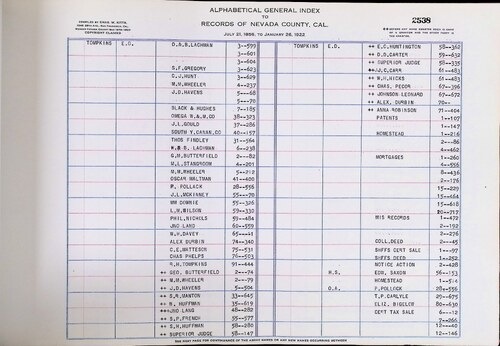 ALPHABETICAL GENERAL INDEX
TO
RECORDS OF NEVADA COUNTY, CAL.
2538
COPYRIGHT CLAIMED
TOMPKINS E.G. D.B.B. LACHMAN 3--599
3--601
3--604
S.F. GREGORY 3--623
C.J. HUNT 3--629
W.M. WHEELER 4--237
J.D. HAVENS 5--68
5--70
BLACK & HUGHES 7--185
OMEGA W.& M. CO 38--323
J.L. GOULD 37--286
SOUTH Y. CANAN. CO 40--157
THOS FINDLEY 31--364
W.B.B. LACHMAN 6--238
G.M. BUTTERFIELD 2--82
M.L. STANGROOM 4--201
M.M. WHEELER 5--212
OSCAR MALTMAN 41--400
P. POLLACK 28--556
J.L. MCKINNEY 55--70
WM DOWNIE 55--326
L.H. WILSON 59--330
PHIL. NICHOLS 59--484
JNO LANG 60--559
W.H. DAVEY 65--41
ALEX DURBIN 74--340
C.E. MATTESON 75--531
CHAS PHELPS 76--503
R.H. TOMPKINS 91--444
++ GEO. BUTTERFIELD 2--74
++ M.M. WHEELER 2--79
++ J.D. HAVENS 5--504
++ S.R. MANTON 33--645
++ R. HUFFMAN 35--619
++ JNO LANG 48--282
++ S.P. FRENCH 55--577
++ S.H. HUFFMAN 58--280
++ SUPERIOR JUDGE 58--147
TOMPKINS E.D. ++ E.C. HUNTINGTON 58--362
++ D.D. CARTER 59--632
++ SUPERIOR JUDGE 58--335
++ J.C. CARR 61--483
++ W.H. HICKS 61--483
++ CHAS. PECOR 67--396
++ JOHNSON LEONARD 67--672
++ ALEX. DURBIN 70--
++ ANNA ROBINSON 71--404
PATENTS 1--107
1--147
HOMESTEAD 1--216
2--86
4--462
MORTGAGES 1--260
4--555
8--436
2--176
15--229
15--464
15--618
20--712
MIS RECORDS 1--472
2--192
2--276
COLL. DEED 2--45
SHFFS CERT SALE 1--97
SHFFS DEED 1--252
NOTICE ACTION 2--428
H.S. EDW. SAXON 56--153
HOMESTEAD 1--514
O.A. P. POLLOCK 28--556
T.P. CARLYLE 27--675
ELIZ. BIGELOW 80--630
CERT TAX SALE 6--12
7--266
12--40
12--146